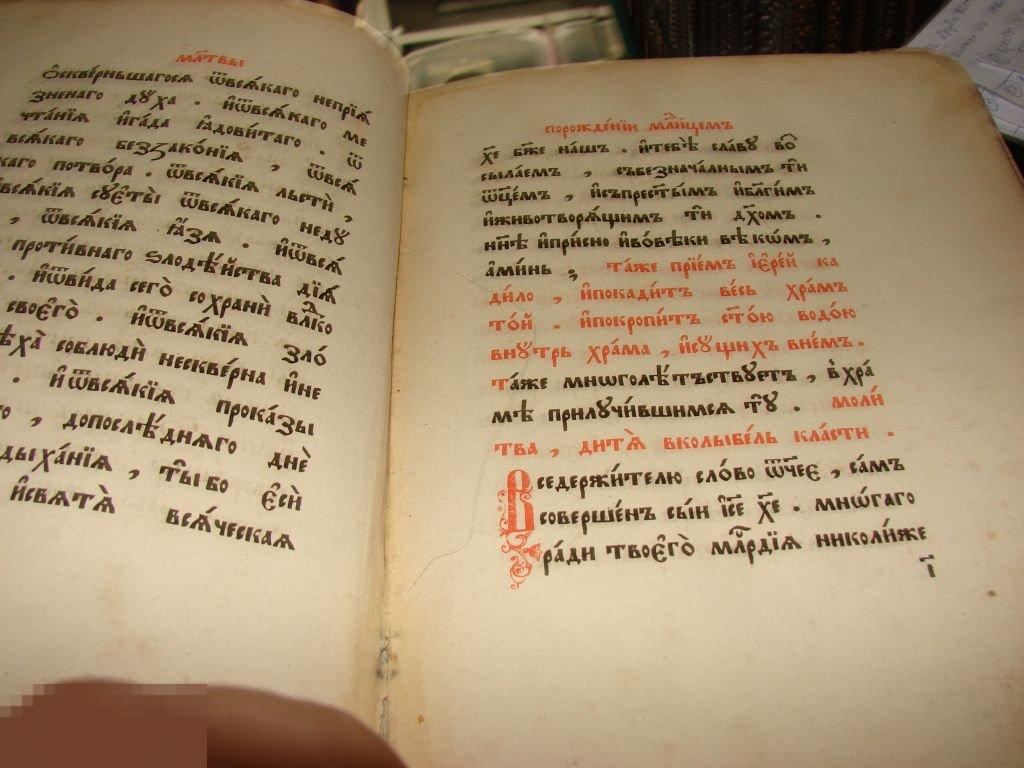 мл҃твы
ѻ҆скве́рньшагосѧ ѿвсѧ́каго непрїѧ́
зненаго дꙋ́ха . и҆ѿвсѧ́каго ме
чта́нїѧ и҆га́да ꙗ҆дови́таго . ѿ
всѧ́каго беззако́нїѧ , ѿвсѧ́
каго потво́ра . ѿвсѧ́кїѧ льстѝ ,
всѧ́кїѧ сꙋєты̀ ѿвсѧ́каго недꙋ
, ѿвсѧ́кїѧ ꙗ҆́зѧ . и҆ѿвсѧ́
проти́внаго ѕлодѣ́йства дїѧ́
. и҆ѿви́да сего̀ сохранѝ влⷣко
своєго̀ . и҆ѿвсѧ́кїѧ зло́
соблюдѝ нескве́рна и҆не
. и҆ѿвсѧ́кїѧ прока́зы
, допослѣ́днѧго днѐ
дыха́нїѧ , ты́ бо є҆сѝ
и҆свѧтѧ̀ всѧ́ческаѧ
порожде́нїи млⷣнцемъ
хе҃ бж҃е нашъ . и҆тебѣ̀ сла́вꙋ во
сыла́ем , събезнача́лнымъ ти
ѿц҃е́мъ , и҆съпрест҃ы́мъ и҆бл҃ги́мъ
и҆животворѧ́щимъ ти дх҃омъ .
нн҃ѣ и҆при́сно и҆вовѣ́ки вѣкѡ́мъ ,
а҆ми́нь ; та́же прїе́мъ і҆єре́й ка
ди́ло , и҆покади́тъ ве́сь хра́мъ
то́й . и҆покропи́тъ ст҃о́ю водо́ю
внꙋ́трь хра́ма , и҆сꙋ́щихъ вне́мъ .
та́же мнѡголѣ́тъствꙋетъ , в҆хра́
мѣ прилꙋчи́вшимсѧ тꙋ̀ . моли́
тва , дитѧ̀ вколыбе́ль кла́сти .
Вседержи́телю сло́во ѿч҃еє , са́мъ
соверше́нъ сы́и і҆с҃е хе҃ . мнѡ́гаго
ра́ди твоєго̀ млⷭ҇рдїѧ николи́же
і҃